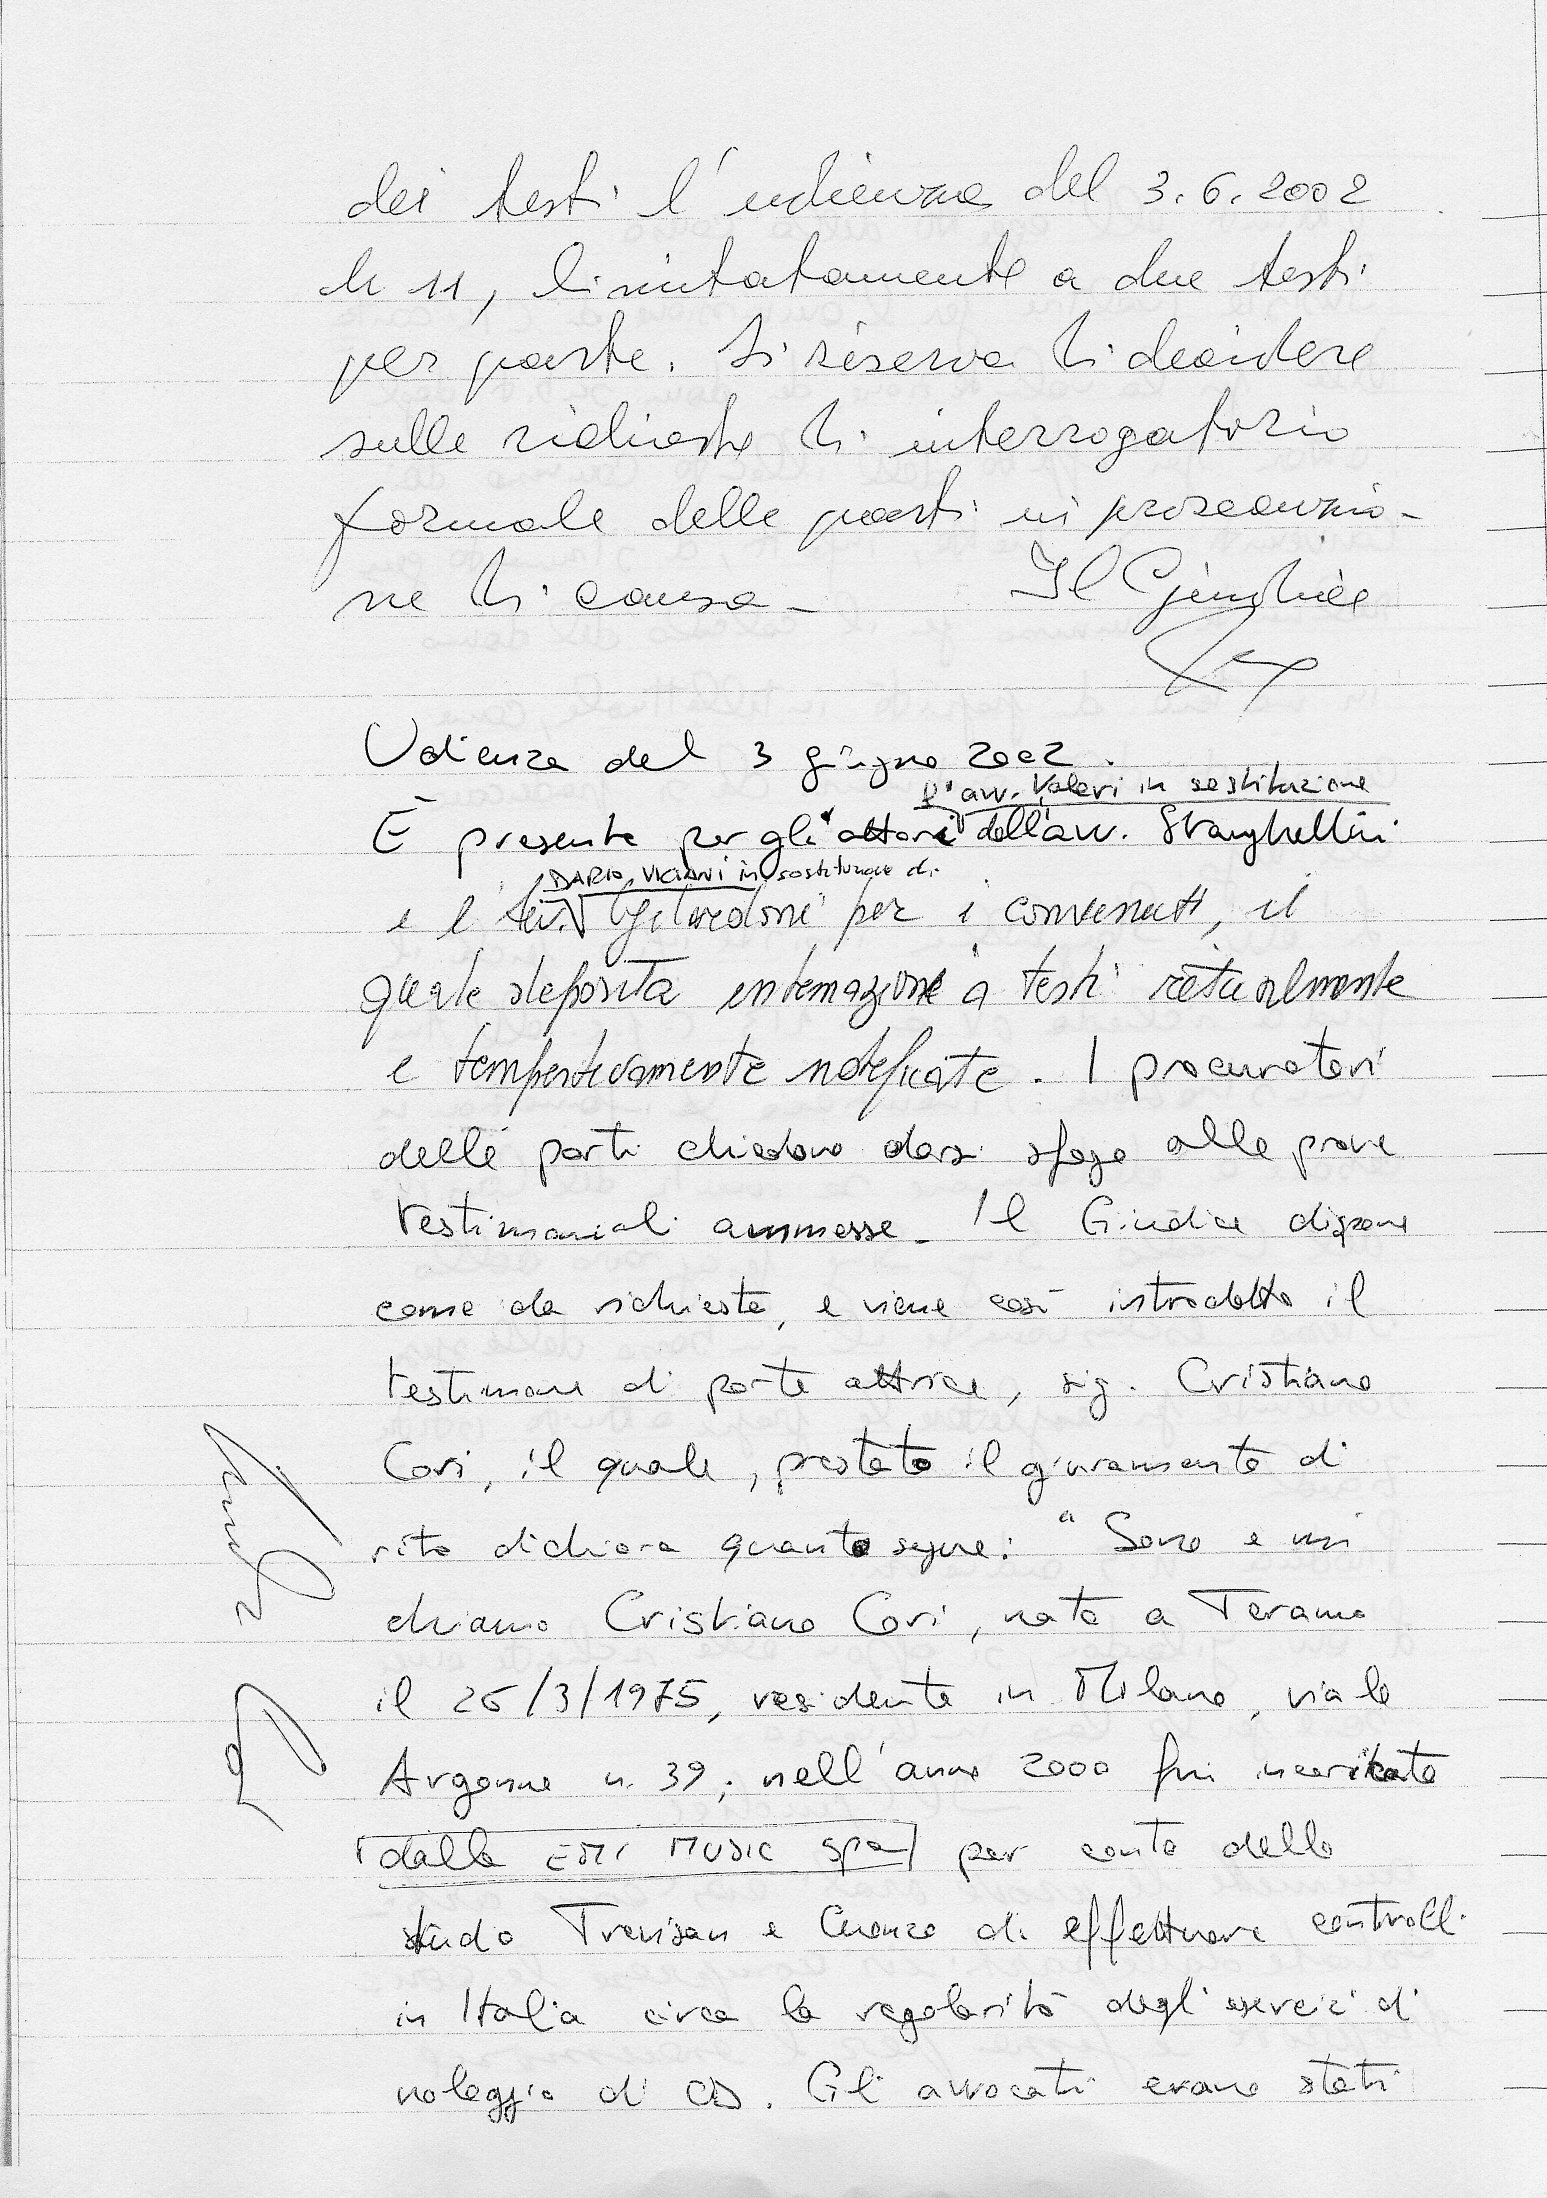 dei testi l'udienza del 3.6.2002
h 11, limitatamente a due testi
per parte. Si riserva di decidere
sulle richieste di interrogatorio
formale delle parti in prosecuzio-
ne di causa -
Il Giudice
Udienza del 3 giugno 2002.
l'avv. Valeri in sostituzione
È presente per gli attori dell'avv. Stanghellini
DARIO VICIANI in sostituzione di
e l'avv. Gelardoni per i convenuti, il
quale deposita intimazione a testi ritualmente
e tempestivamente notificate. I procuratori
delle parti chiedono darsi sfogo alle prove
testimoniali ammesse - Il Giudice dispone
come da richiesta, e viene così introdotto il
testimone di parte attrice, sig. Cristiano
Cori, il quale, prestato il giuramento di
rito dichiara quanto segue: "Sono e mi
chiamo Cristiano Cori, nato a Teramo
il 26/3/1975, residente in Milano, viale
Argonne n. 39; nell'anno 2000 fui incaricato
dalla EMI MUSIC spa per conto dello
studio Trevisan e Cuonzo di effettuare controlli
in Italia circa la regolarità degli esercizi di
noleggio di CD. Gli avvocati erano stati